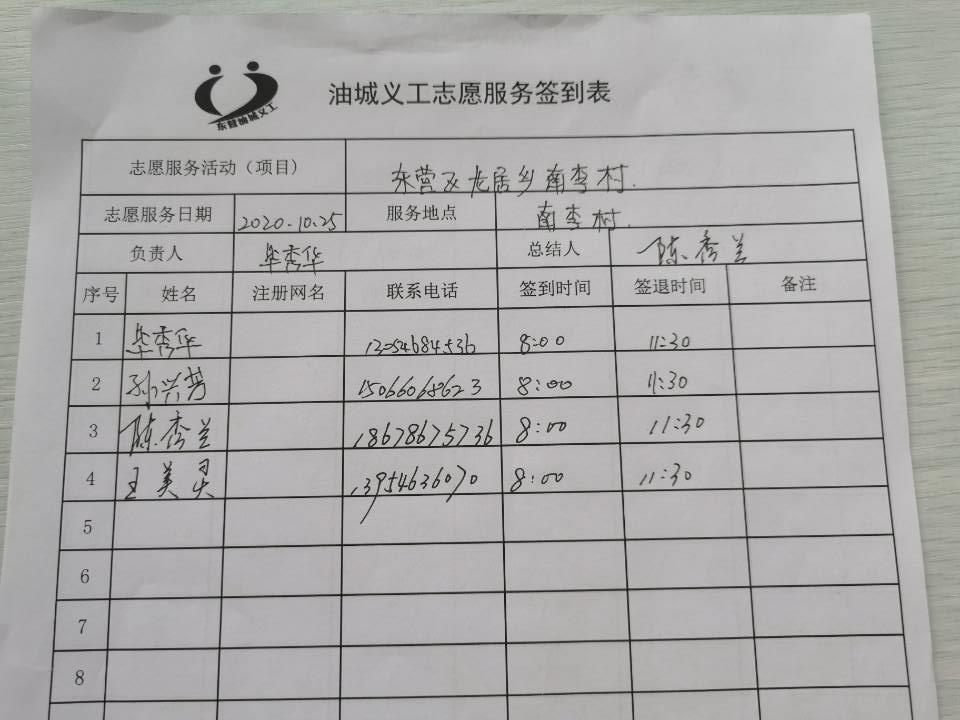 东营油城义工
油城义工志愿服务签到表
志愿服务活动（项目） 东营区龙居乡南李村.
志愿服务日期 2020.10.25 服务地点 南李村.
负责人 毕秀华 总结人 陈秀兰
序号 姓名 注册网名 联系电话 签到时间 签退时间 备注
1 毕秀华 8:00 11:30
2 孙兴芳 15066068623 8:00 11:30
3 陈秀兰 18678675736 8:00 11:30
4 王美灵 13954636070 8:00 11:30
5
6
7
8